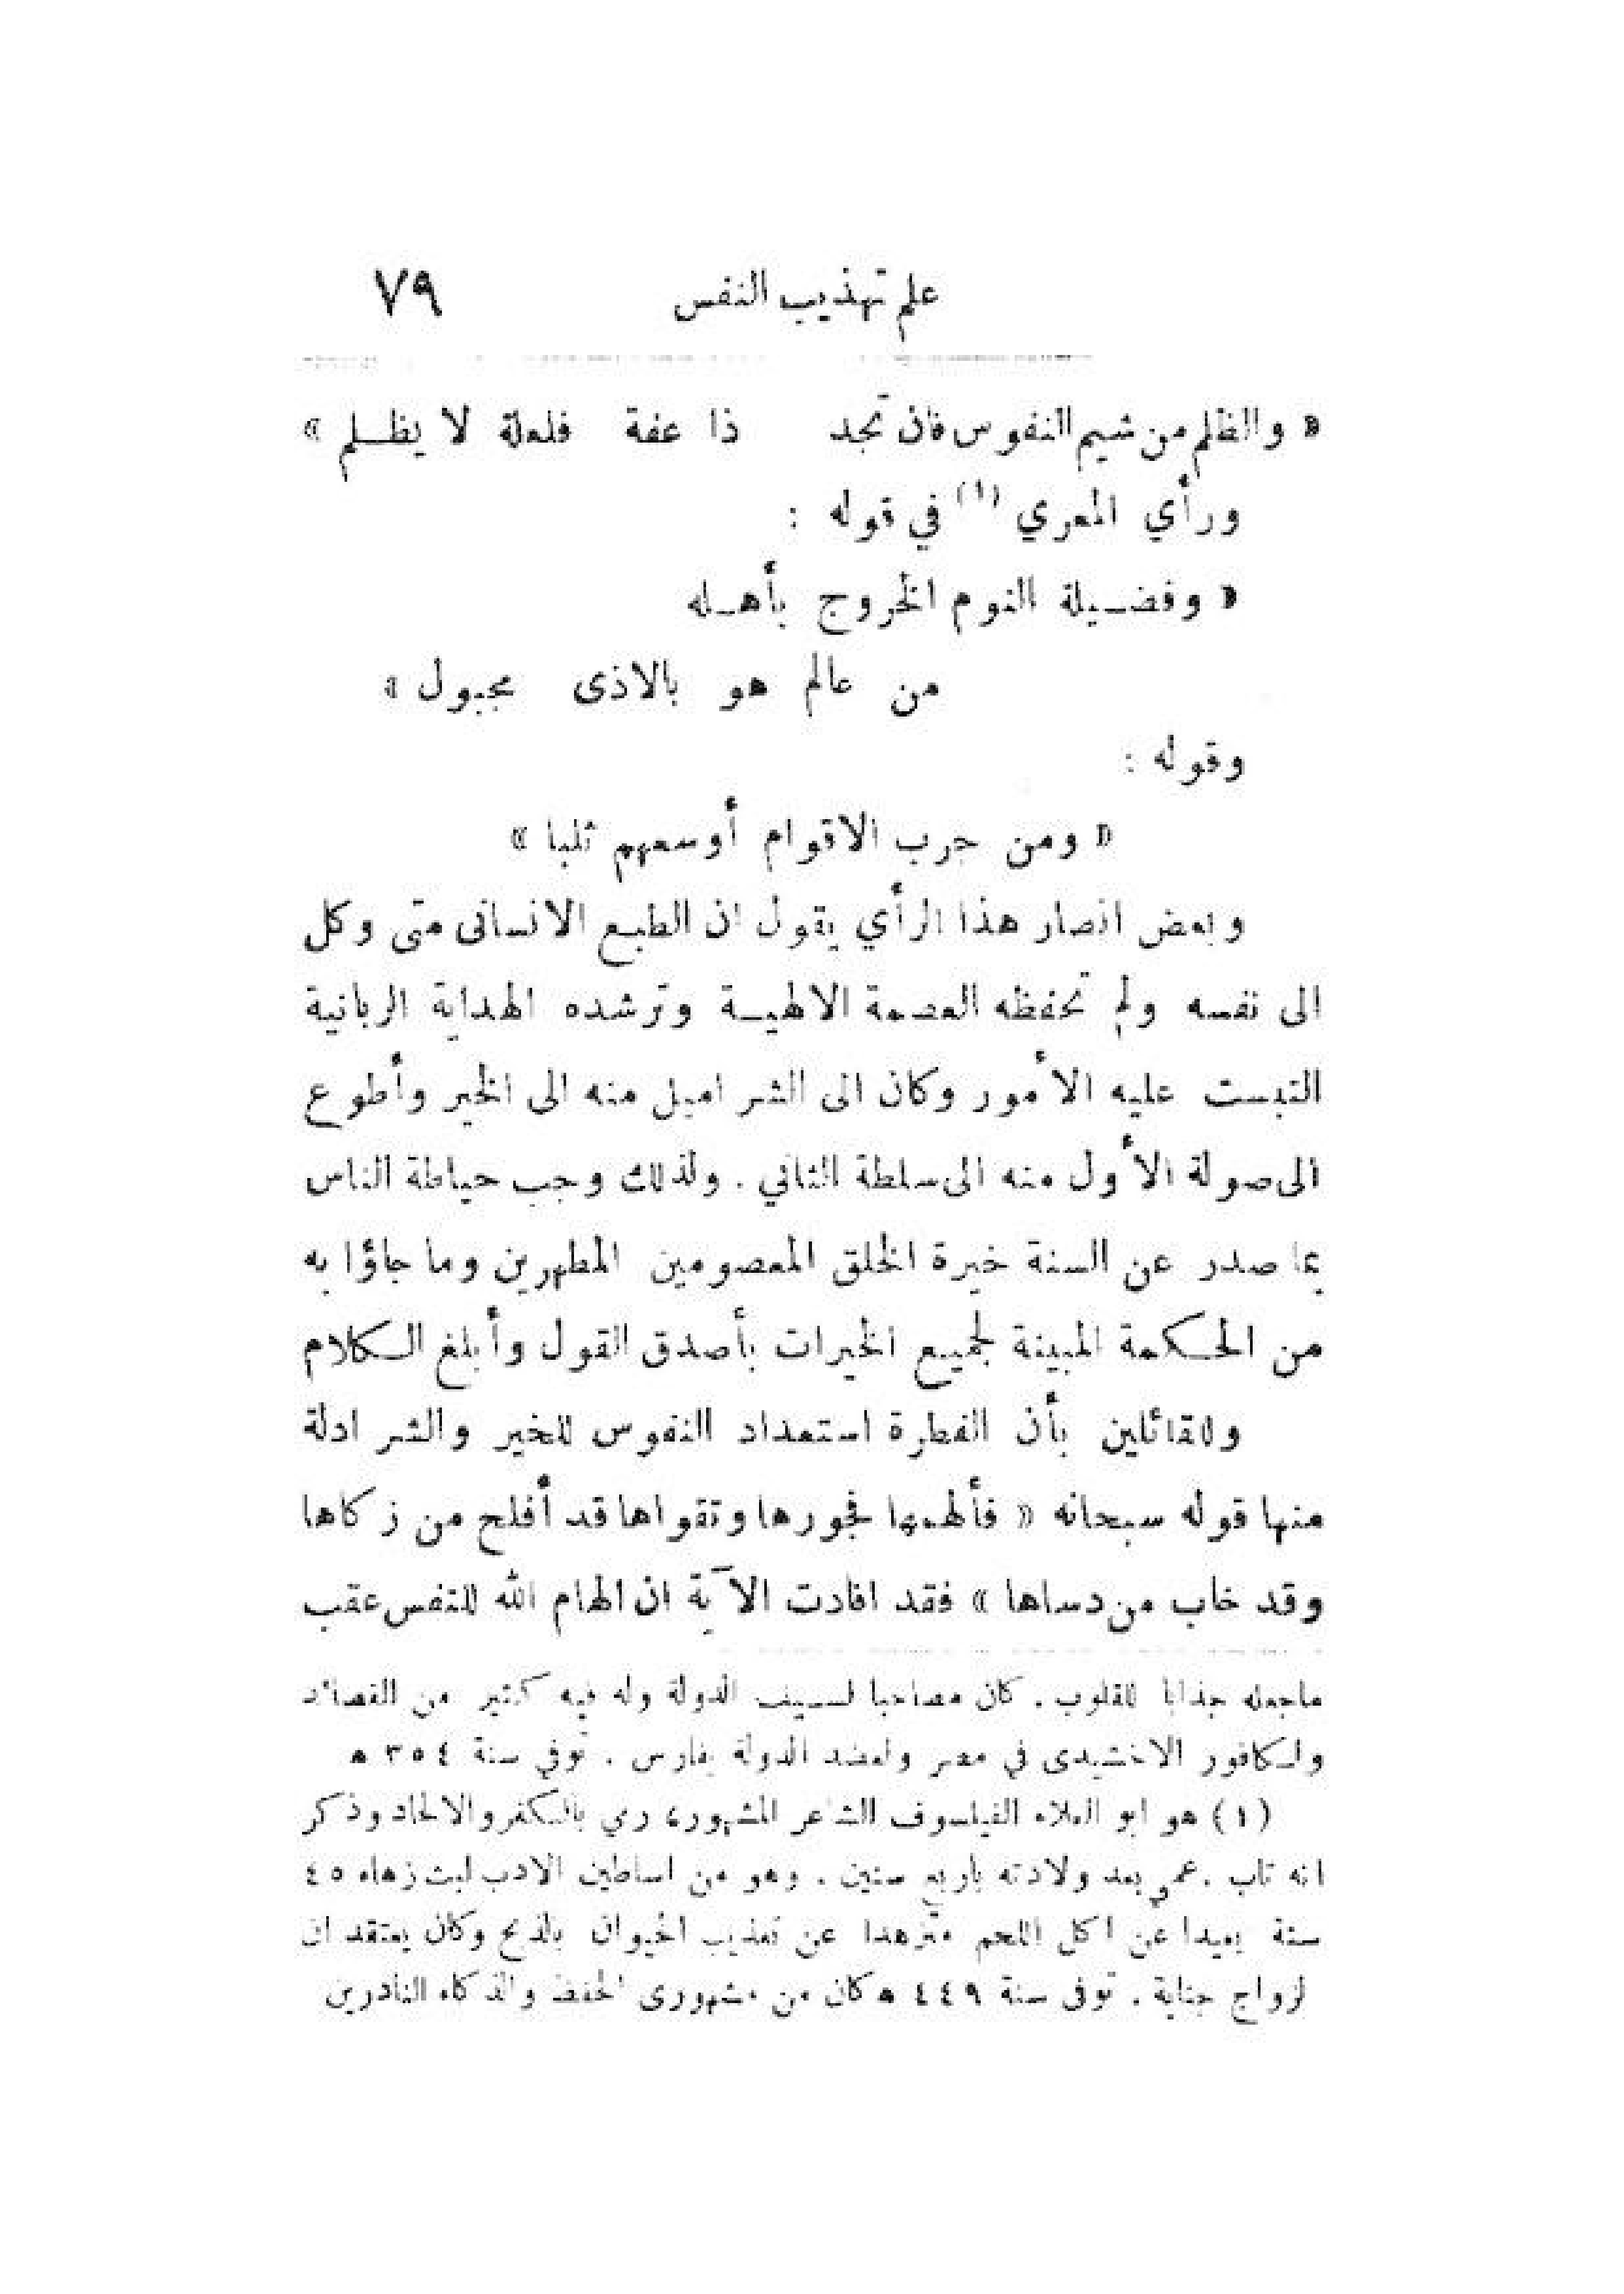 علم تهذيب النفس ٧٩
« والظلم من شيم النفوس فان تجد ذا عفة فلعلة لا يظلم »
ورأي المعري (١) في قوله :
« وفضيلة النوم الخروج بأهله
من عالم هو بالاذى مجبول »
وقوله :
« ومن جرب الاقوام أوسعهم ثلبا »
وبعض انصار هذا الرأي يقول ان الطبع الانسانى متى وكل
الى نفسه ولم تحفظه العصمة الالهية وترشده الهداية الربانية
التبست عليه الأمور وكان الى الشر اميل منه الى الخير وأطوع
الى صولة الأول منه الى سلطة الثاني . ولذلك وجب حياطة الناس
بما صدر عن السنة خيرة الخلق المعصومين المطهرين وما جاؤا به
من الحكمة المبينة لجميع الخيرات بأصدق القول وأبلغ الكلام
وللقائلين بأن الفطرة استعداد النفوس للخير والشر ادلة
منها قوله سبحانه « فألهمها فجورها وتقواها قد أفلح من زكاها
وقد خاب من دساها » فقد افادت الآية ان الهام الله للنفس عقب
ماجعله جذابا للقلوب . كان مصاحبا لسيف الدولة وله فيه كثير من القصائد
والكافور الاخشيدى في مصر ولعضد الدولة بفارس . توفي سنة ٣٥٤ ه
(١) هو ابو العلاء الفيلسوف الشاعر المشهور، رمي بالكفر والالحاد وذكر
انه تاب . عمي بعد ولادته بأربع سنين . وهو من اساطين الادب لبث زهاء ٤٥
سنة بعيدا عن اكل اللحم متزهدا عن تعذيب الحيوان بالذبح وكان يعتقد ان
لزواج جناية . توفى سنة ٤٤٩ ه كان من مشهورى الحفظ والذكاء النادرين